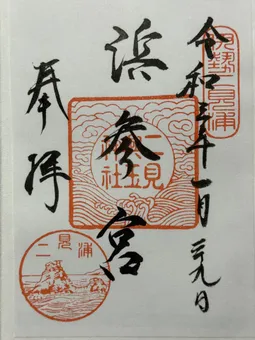 伊勢二見浦
令和三年一月二九日
浜参宮
二見興玉神社
奉拝
二見浦